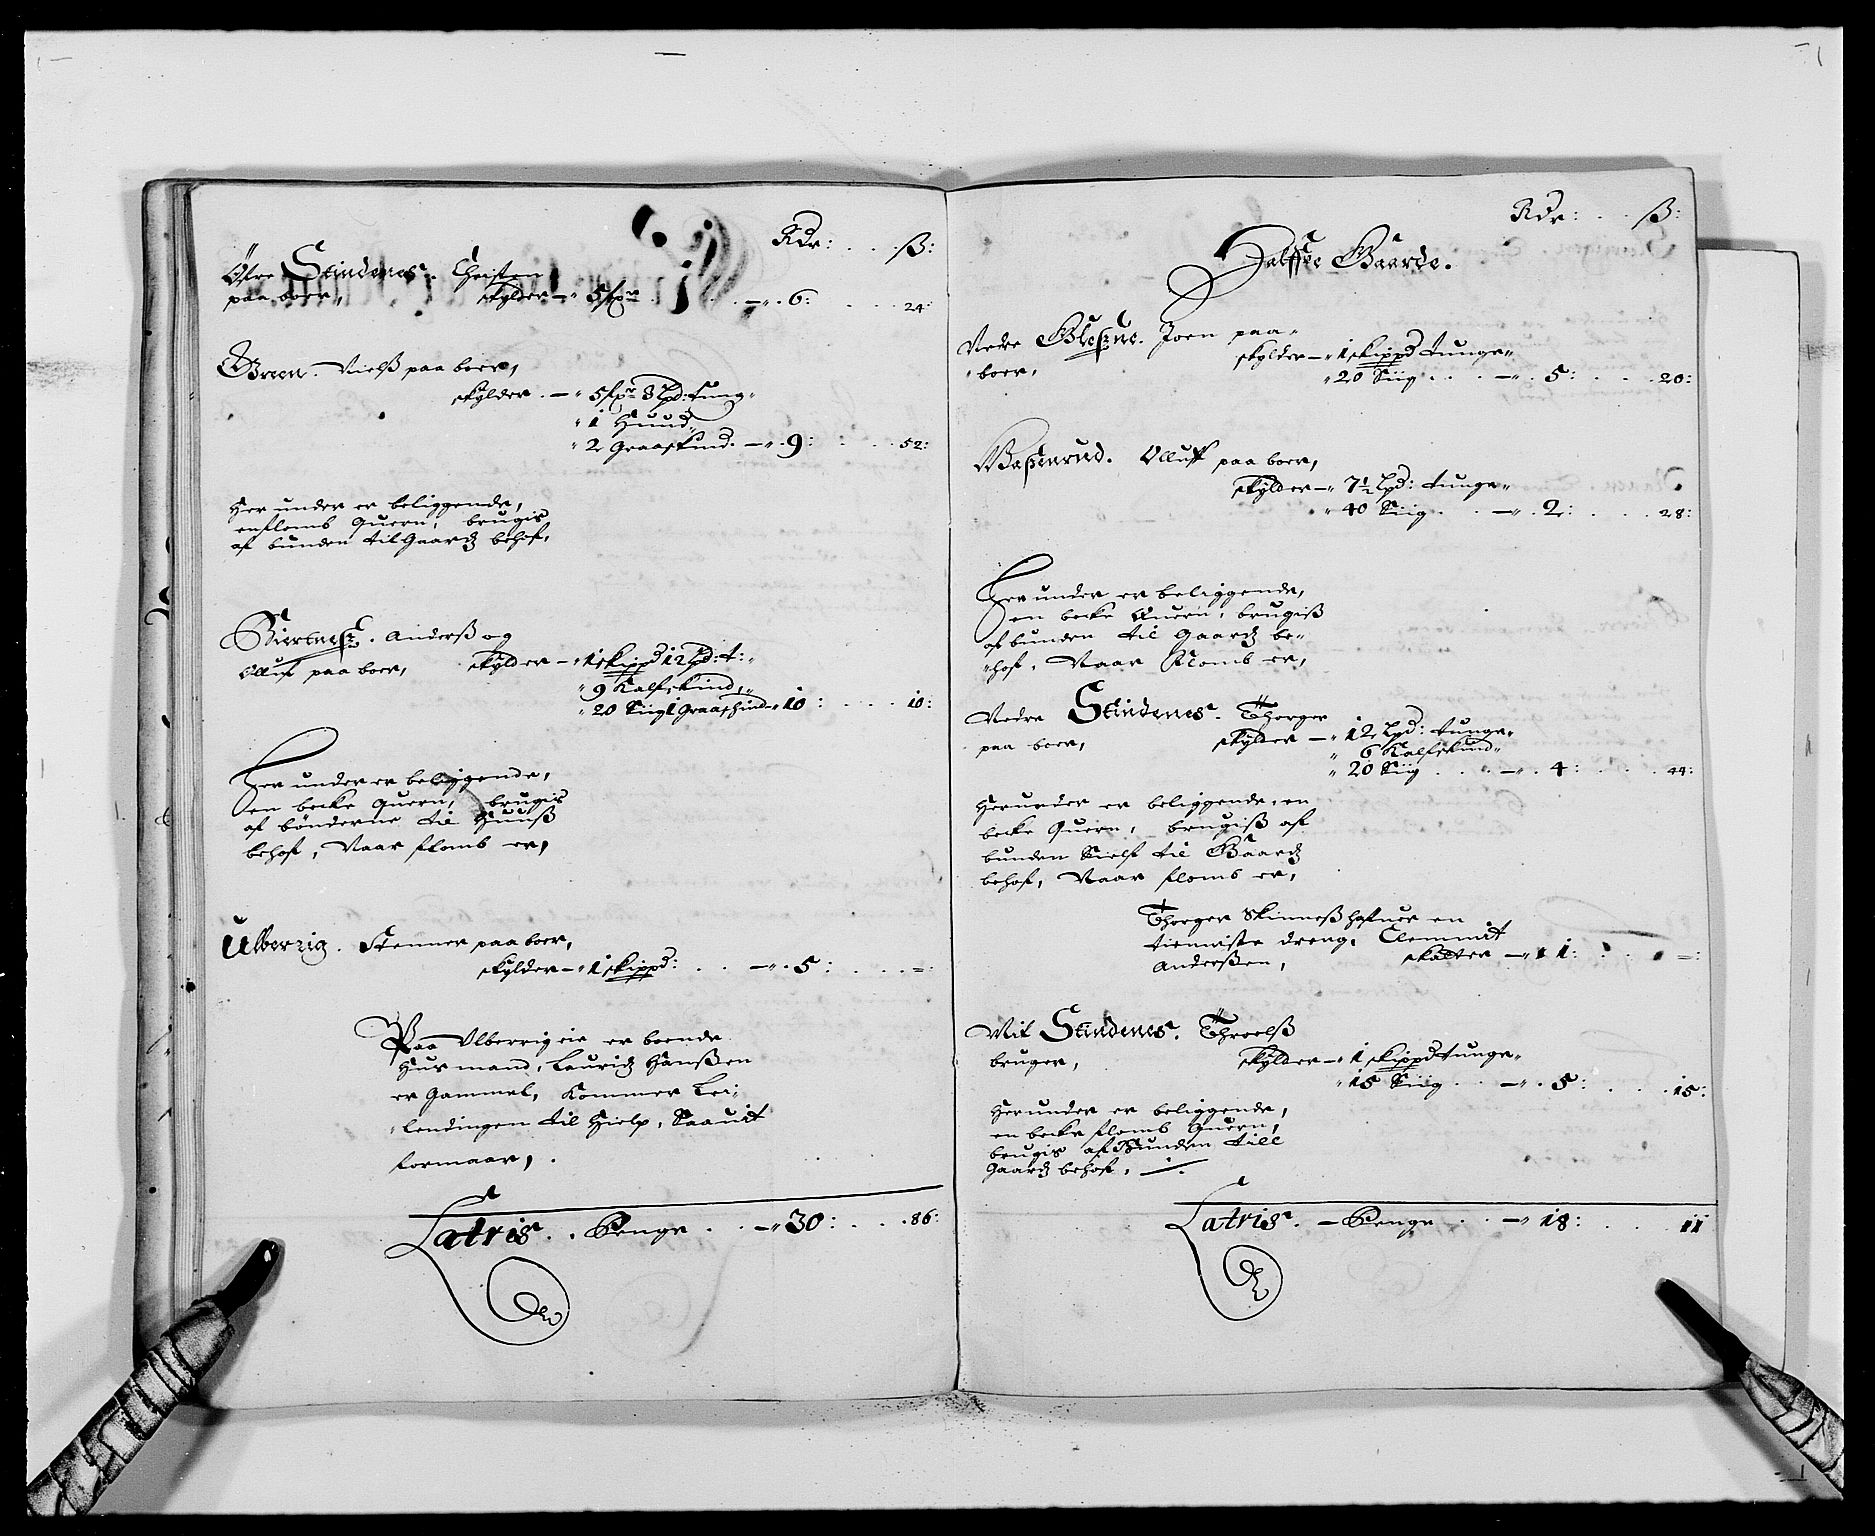 Rdr: . . . ß:
Øfre Stindenes. Christen
paa boer, skylder — 5 sk̄pr . . . — 6: . . . 24:
Green. Nielß paa boer,
skylder . — 5 sk̄pr 3 Lpd: tung
1 Huud
2 Graaskind. — 9: . . . 52:
Her under er beliggende,
en flomb Quern, brugis
af bunden til Gaardz behof,
Biertneß. Anderß og
Olluf paa boer, skylder — 1 skippd 12 Lpd: t:
9 Kalfskind,
20 Siig 1 Graaskind — 10: . . . 10:
Her under er beliggende,
en becke Quern, brugis
af bønderne til Huuß
behof, Naar flomb er,
Ulberrig. Stenner paa boer,
skylder — 1 skippd: . . . — 5: . . . =:
Paa Ulberrig eie er boende
Husmand, Lauridz Hanßen
er Gammel, Kommer Lei-
lendingen til Hielp, Saauit
formaar, .
Latris . . Penge . . — 30: . . . 86:
Rdr: . . . ß:
Halffue Gaarde.
Nedre Gleßne. Joen paa
boer, skylder — 1 skippd tunge
20 Siig . . . — 5: . . . 20:
Waßenrud. Olluff paa boer,
skylder — 7½ Lpd: tunge
40 Siig . . — 2: . . . 28:
Her under er beliggende,
en becke Quern, brugiß
af bunden til Gaardz be-
hof, Naar flomb er,
Nedre Stindenes. Thorger
paa boer, skylder — 12 Lpd: tunge
6 Kalfskind
20 Siig . . . — 4: . . . 44:
Herunder er beliggende, en
becke Quern, brugiß af
bunden Sielf til Gaardz
behof, Naar flomb er,
Thorger Skinneß hafuer en
tienniste dreng, Clemmit
Anderßen, skatter — 1: . . =:
Mit Stindenes. Throelß
bruger, skylder — 1 skippd tunge
15 Siig . . — 5: . . . 15:
Her under er beliggende,
en becke flomb Quern,
brugis af Bunden till
Gaardz behof,
Latris. — Penge . . — 18: . . . 11